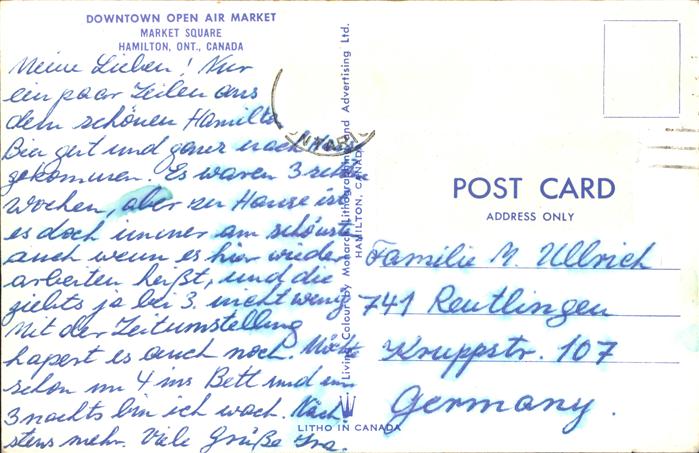 DOWNTOWN OPEN AIR MARKET
MARKET SQUARE
HAMILTON, ONT., CANADA
Meine Lieben! Nur
ein paar Zeilen aus
dem schönen Hamilton
Bin gut und ganz nach Hause
gekommen. Es waren 3 schöne
Wochen, aber zu Hause ist
es doch immer am schönsten
auch wenn es hier wieder
arbeiten heißt, und die
giebts ja bei 3. nicht wenig
Mit der Zeitumstellung
hapert es auch noch. Möchte
schon um 4 ins Bett und um
3 nachts bin ich wach. Näch-
stens mehr. Viele Grüße
Living Colour by Monarch Lithographing and Advertising Ltd.
HAMILTON, CANADA
LITHO IN CANADA
POST CARD
ADDRESS ONLY
Familie M. Ullrich
741 Reutlingen
Kruppstr. 107
Germany.